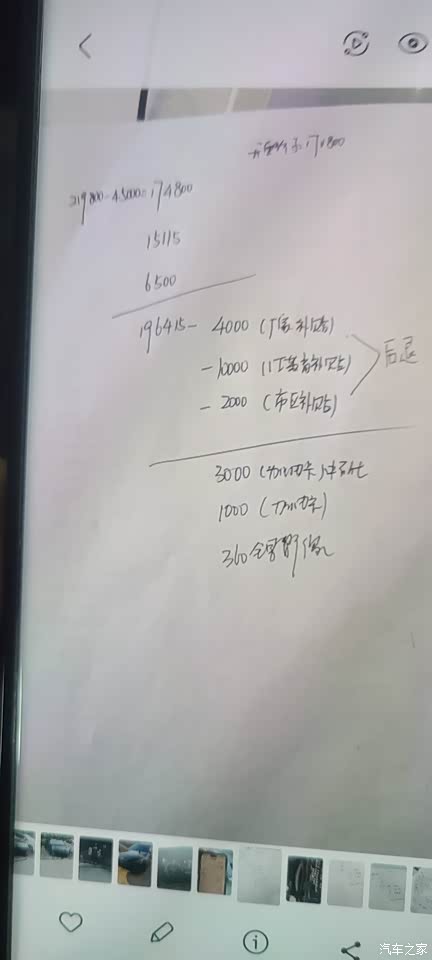 174800
219800-45000=174800
15115
6500
196415- 4000 (厂家补贴)
-10000 (江苏省补贴)
后退
-2000 (市区补贴)
3000 (加油卡)
1000 (加油卡)
360全景影像
汽车之家